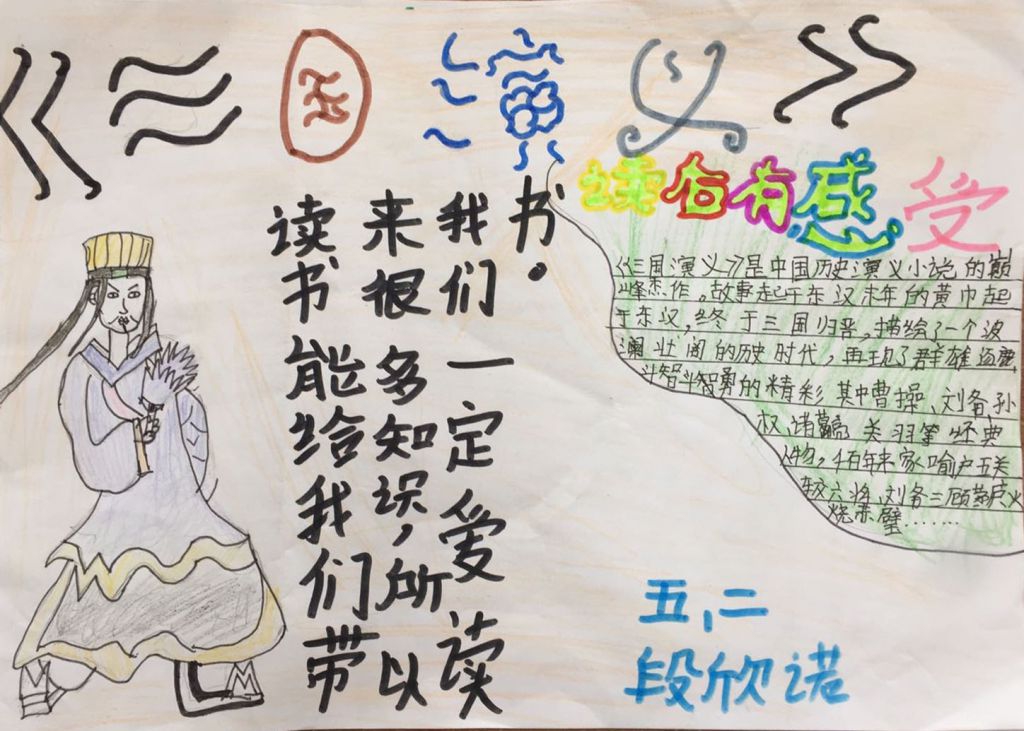 《三国演义》
读后有感受
读书能给我们带
来很多知识,所以
我们一定爱读
书。
《三国演义》是中国历史演义小说的巅
峰杰作。故事起于东汉末年的黄巾起
于东汉,终于三国归晋,描绘了一个波
澜壮阔的历史时代,再现了群雄逐鹿
斗智斗智勇的精彩其中曹操、刘备孙
权、诸葛亮、关羽等经典
人物,百年来家喻户五关
六将、刘备三顾茅庐火
烧赤壁……
五,二
段欣诺